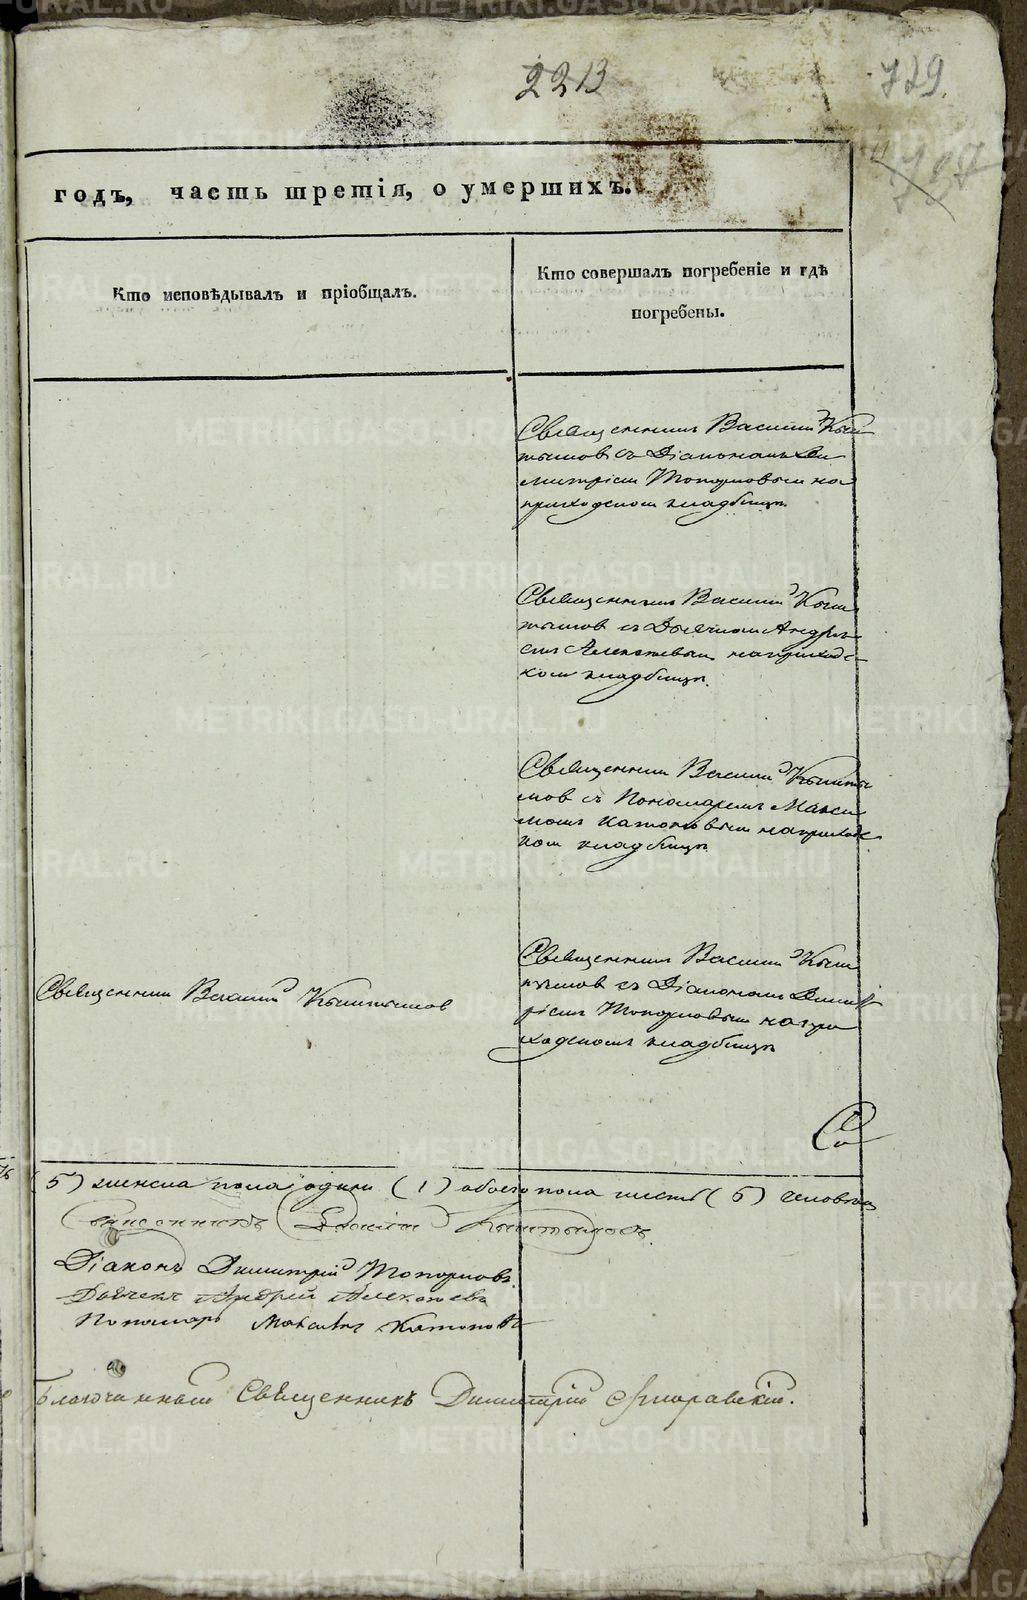 2213
729.
годъ, часть третія, о умершихъ.
Кто исповѣдывалъ и пріобщалъ.
Кто совершалъ погребеніе и гдѣ
погребены.
Священникъ Василій Кыш
тымовъ съ Діакономъ Ди
митріемъ Топорковым на
приходскомъ кладбищѣ.
Священникъ Василій Кыш
тымов съ Дьячкомъ Андре
емъ Алексѣевым на приходс
ком кладбищѣ.
Священник Василій Кышты
мов съ Пономаремъ Макси
момъ Катоновым на приходс
ком кладбищѣ
Священник Василій Кыштымов
Священникъ Василій Кыш
тымов съ Діакономъ Димит
ріемъ Топорковым на при
ходскомъ кладбищѣ
(5) женска пола один (1) обоего пола шесть (6) человѣкъ
Священникъ Василій Кыштымовъ.
Діаконъ Димитрій Топорковъ.
Дьячекъ Андрей Алексѣевъ
Пономарь Максимъ Катоновъ
Благочинный Священникъ Димитрій
METRIKI.GASO-URAL.RU